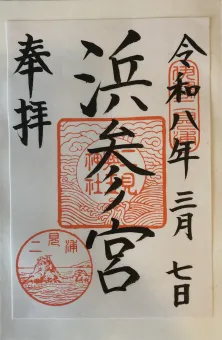 令和八年 三月 七日
浜参宮
奉拝
二見
興玉
神社
二見浦